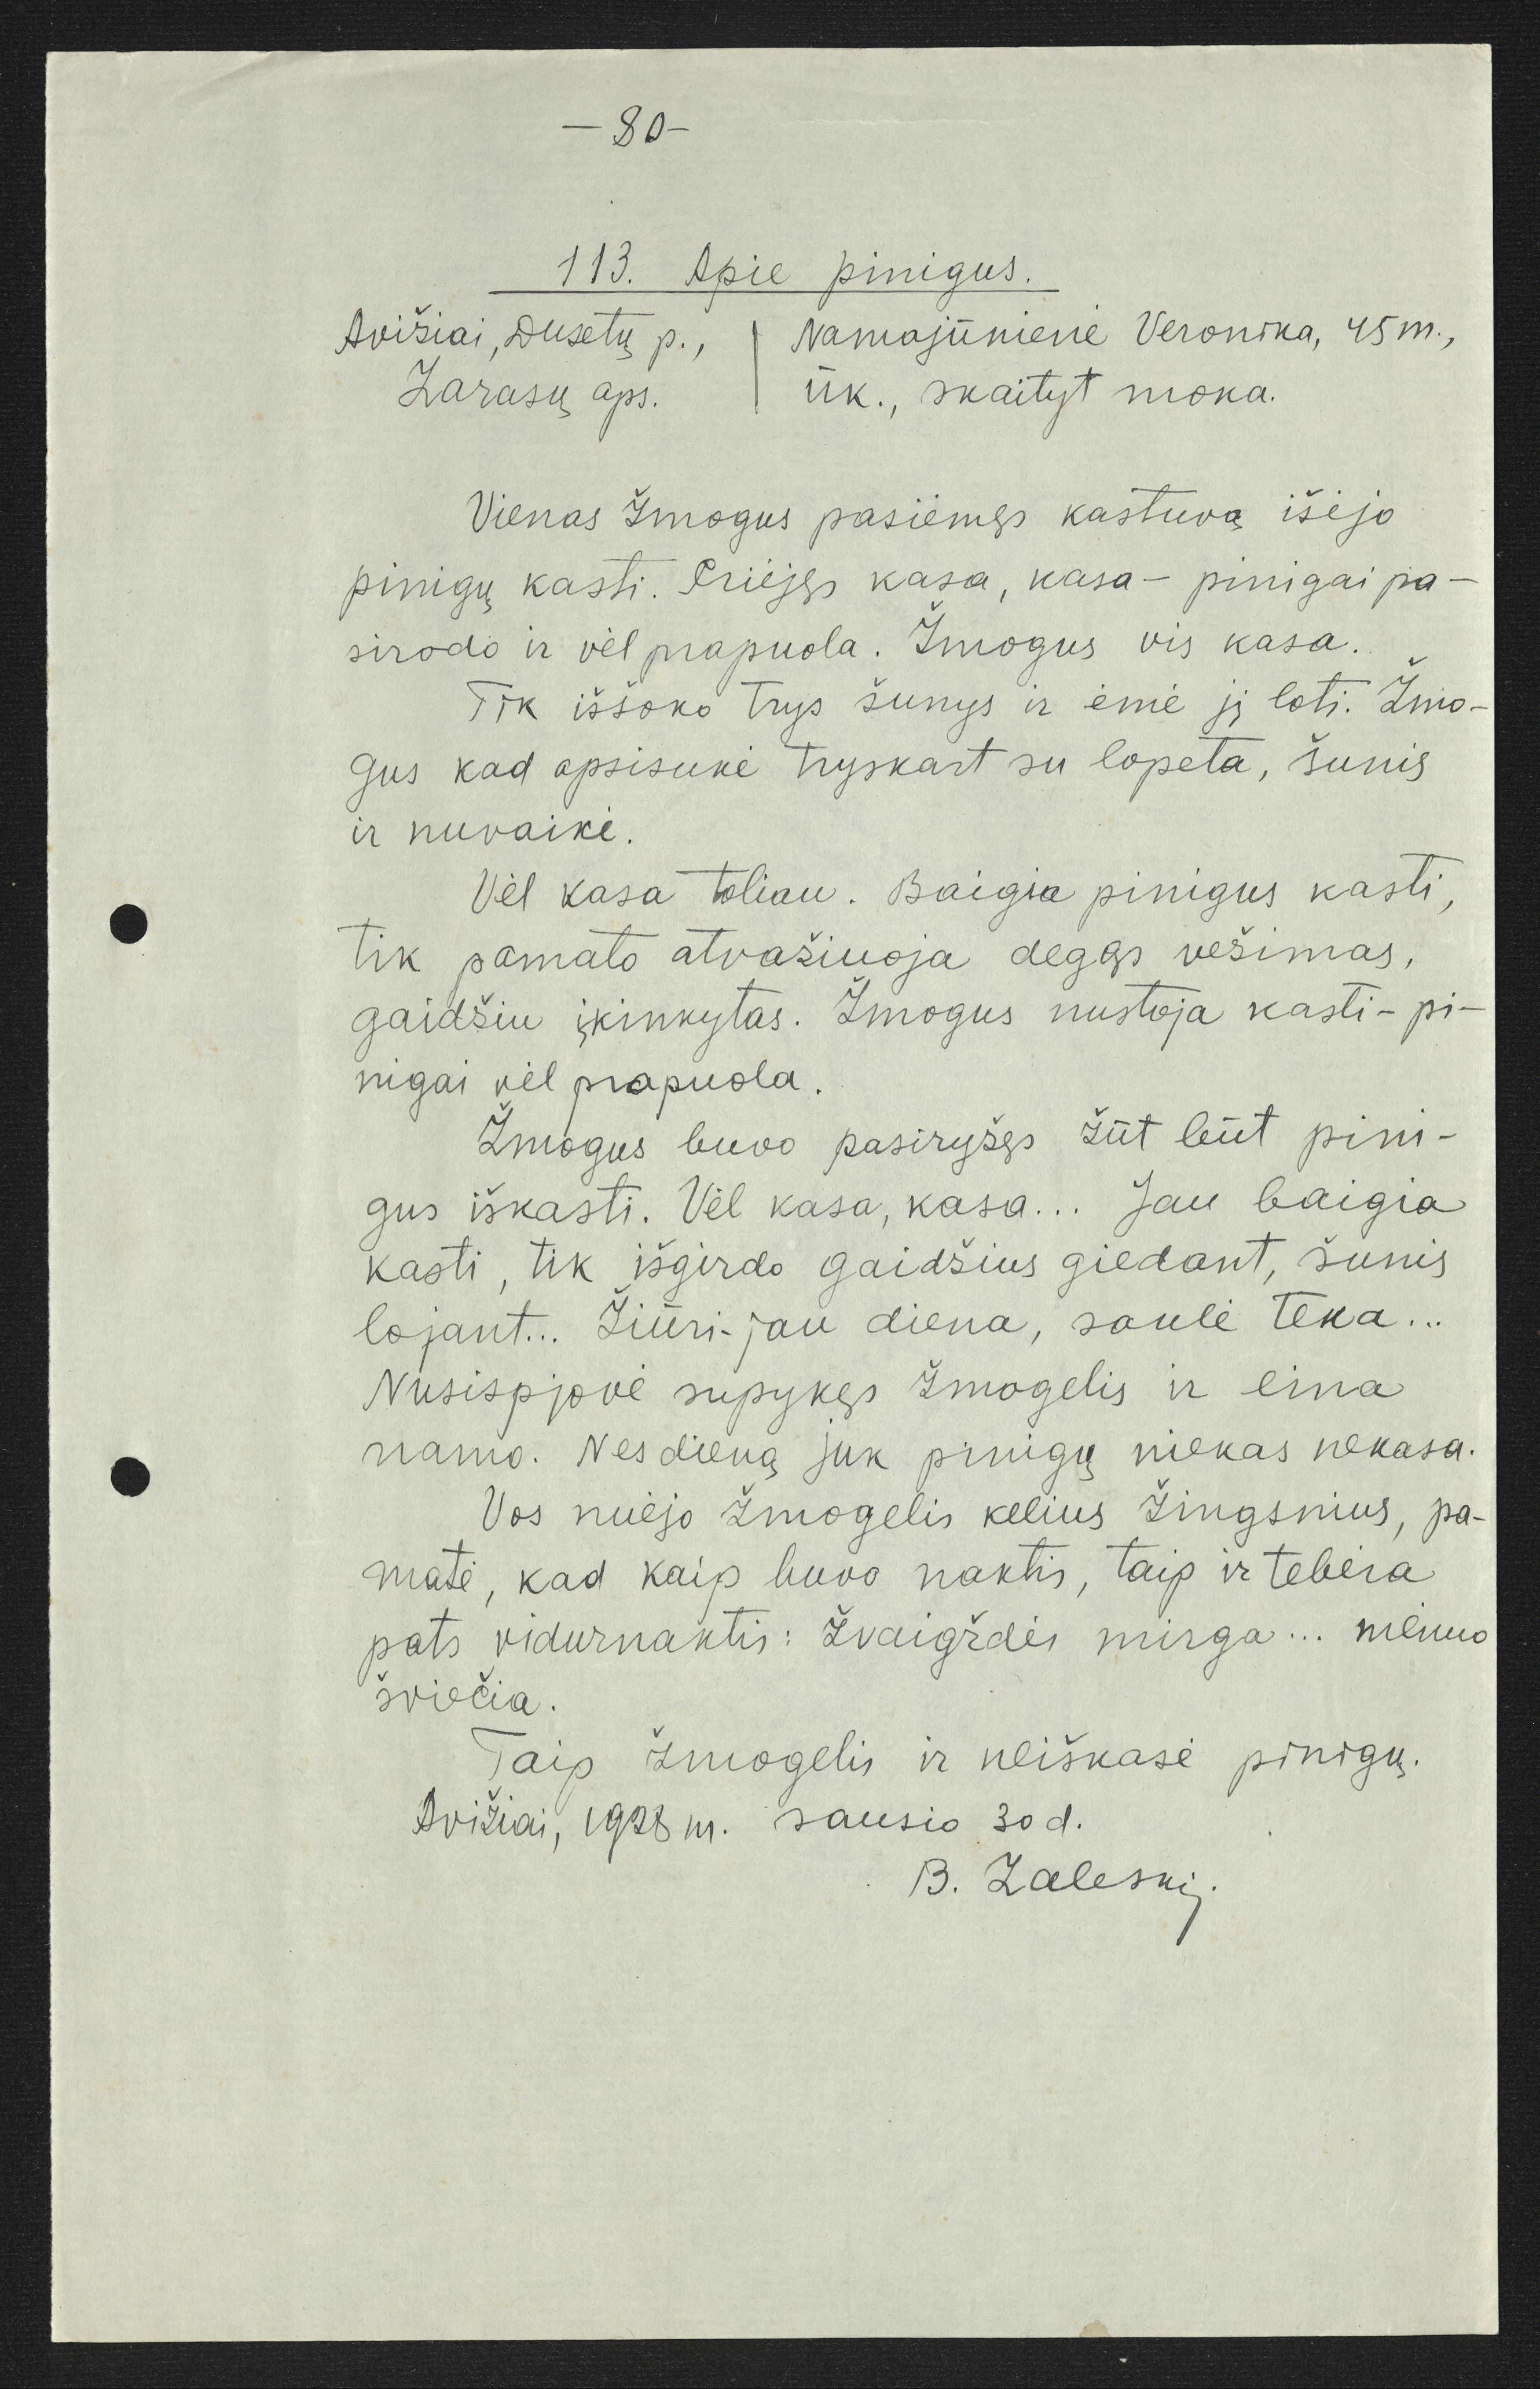 — 80 —
113. Apie pinigus.
Avižiai, Dusetų p., | Namajūnienė Veronika, 45 m.,
Zarasų aps. | ūk., skaityt moka.
Vienas žmogus pasiėmęs kastuvą išėjo
pinigų kasti. Priėjęs kasa, kasa - pinigai pa-
sirodo ir vėl prapuola. Žmogus vis kasa.
Tik iššoko trys šunys ir ėmė jį loti. Žmo-
gus kad apsisukė tryskart su lopeta, šunis
ir nuvaikė.
Vėl kasa toliau. Baigia pinigus kasti,
tik pamato atvažiuoja degąs vežimas,
gaidžiu įkinkytas. Žmogus nustoja kasti - pi-
nigai vėl prapuola.
Žmogus buvo pasiryžęs žūt būt pini-
gus iškasti. Vėl kasa, kasa... Jau baigia
kasti, tik išgirdo gaidžius giedant, šunis
lojant... Žiūri - jau diena, saulė teka...
Nusispjovė supykęs žmogelis ir eina
namo. Nes dieną juk pinigų niekas nekasa.
Vos nuėjo žmogelis kelius žingsnius, pa-
matė, kad kaip buvo naktis, taip ir tebėra
pats vidurnaktis: žvaigždės mirga... mėnuo
šviečia.
Taip žmogelis ir neiškasė pinigų.
Avižiai, 1928 m. sausio 30 d.
B. Zaleskį.